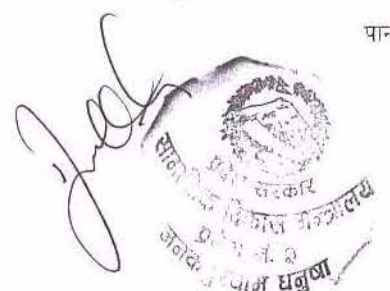 पान
प्रदेश सरकार
सामाजिक विकास मन्त्रालय
प्रदेश नं. २
जनकपुरधाम धनुषा